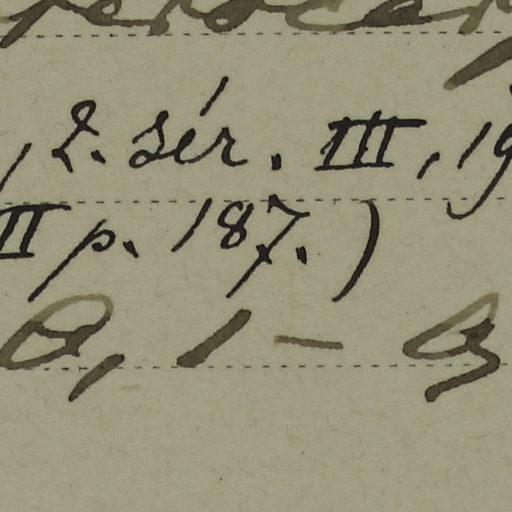 , 2. sér. III, 19
II p. 187. )
0, 1 – 0,